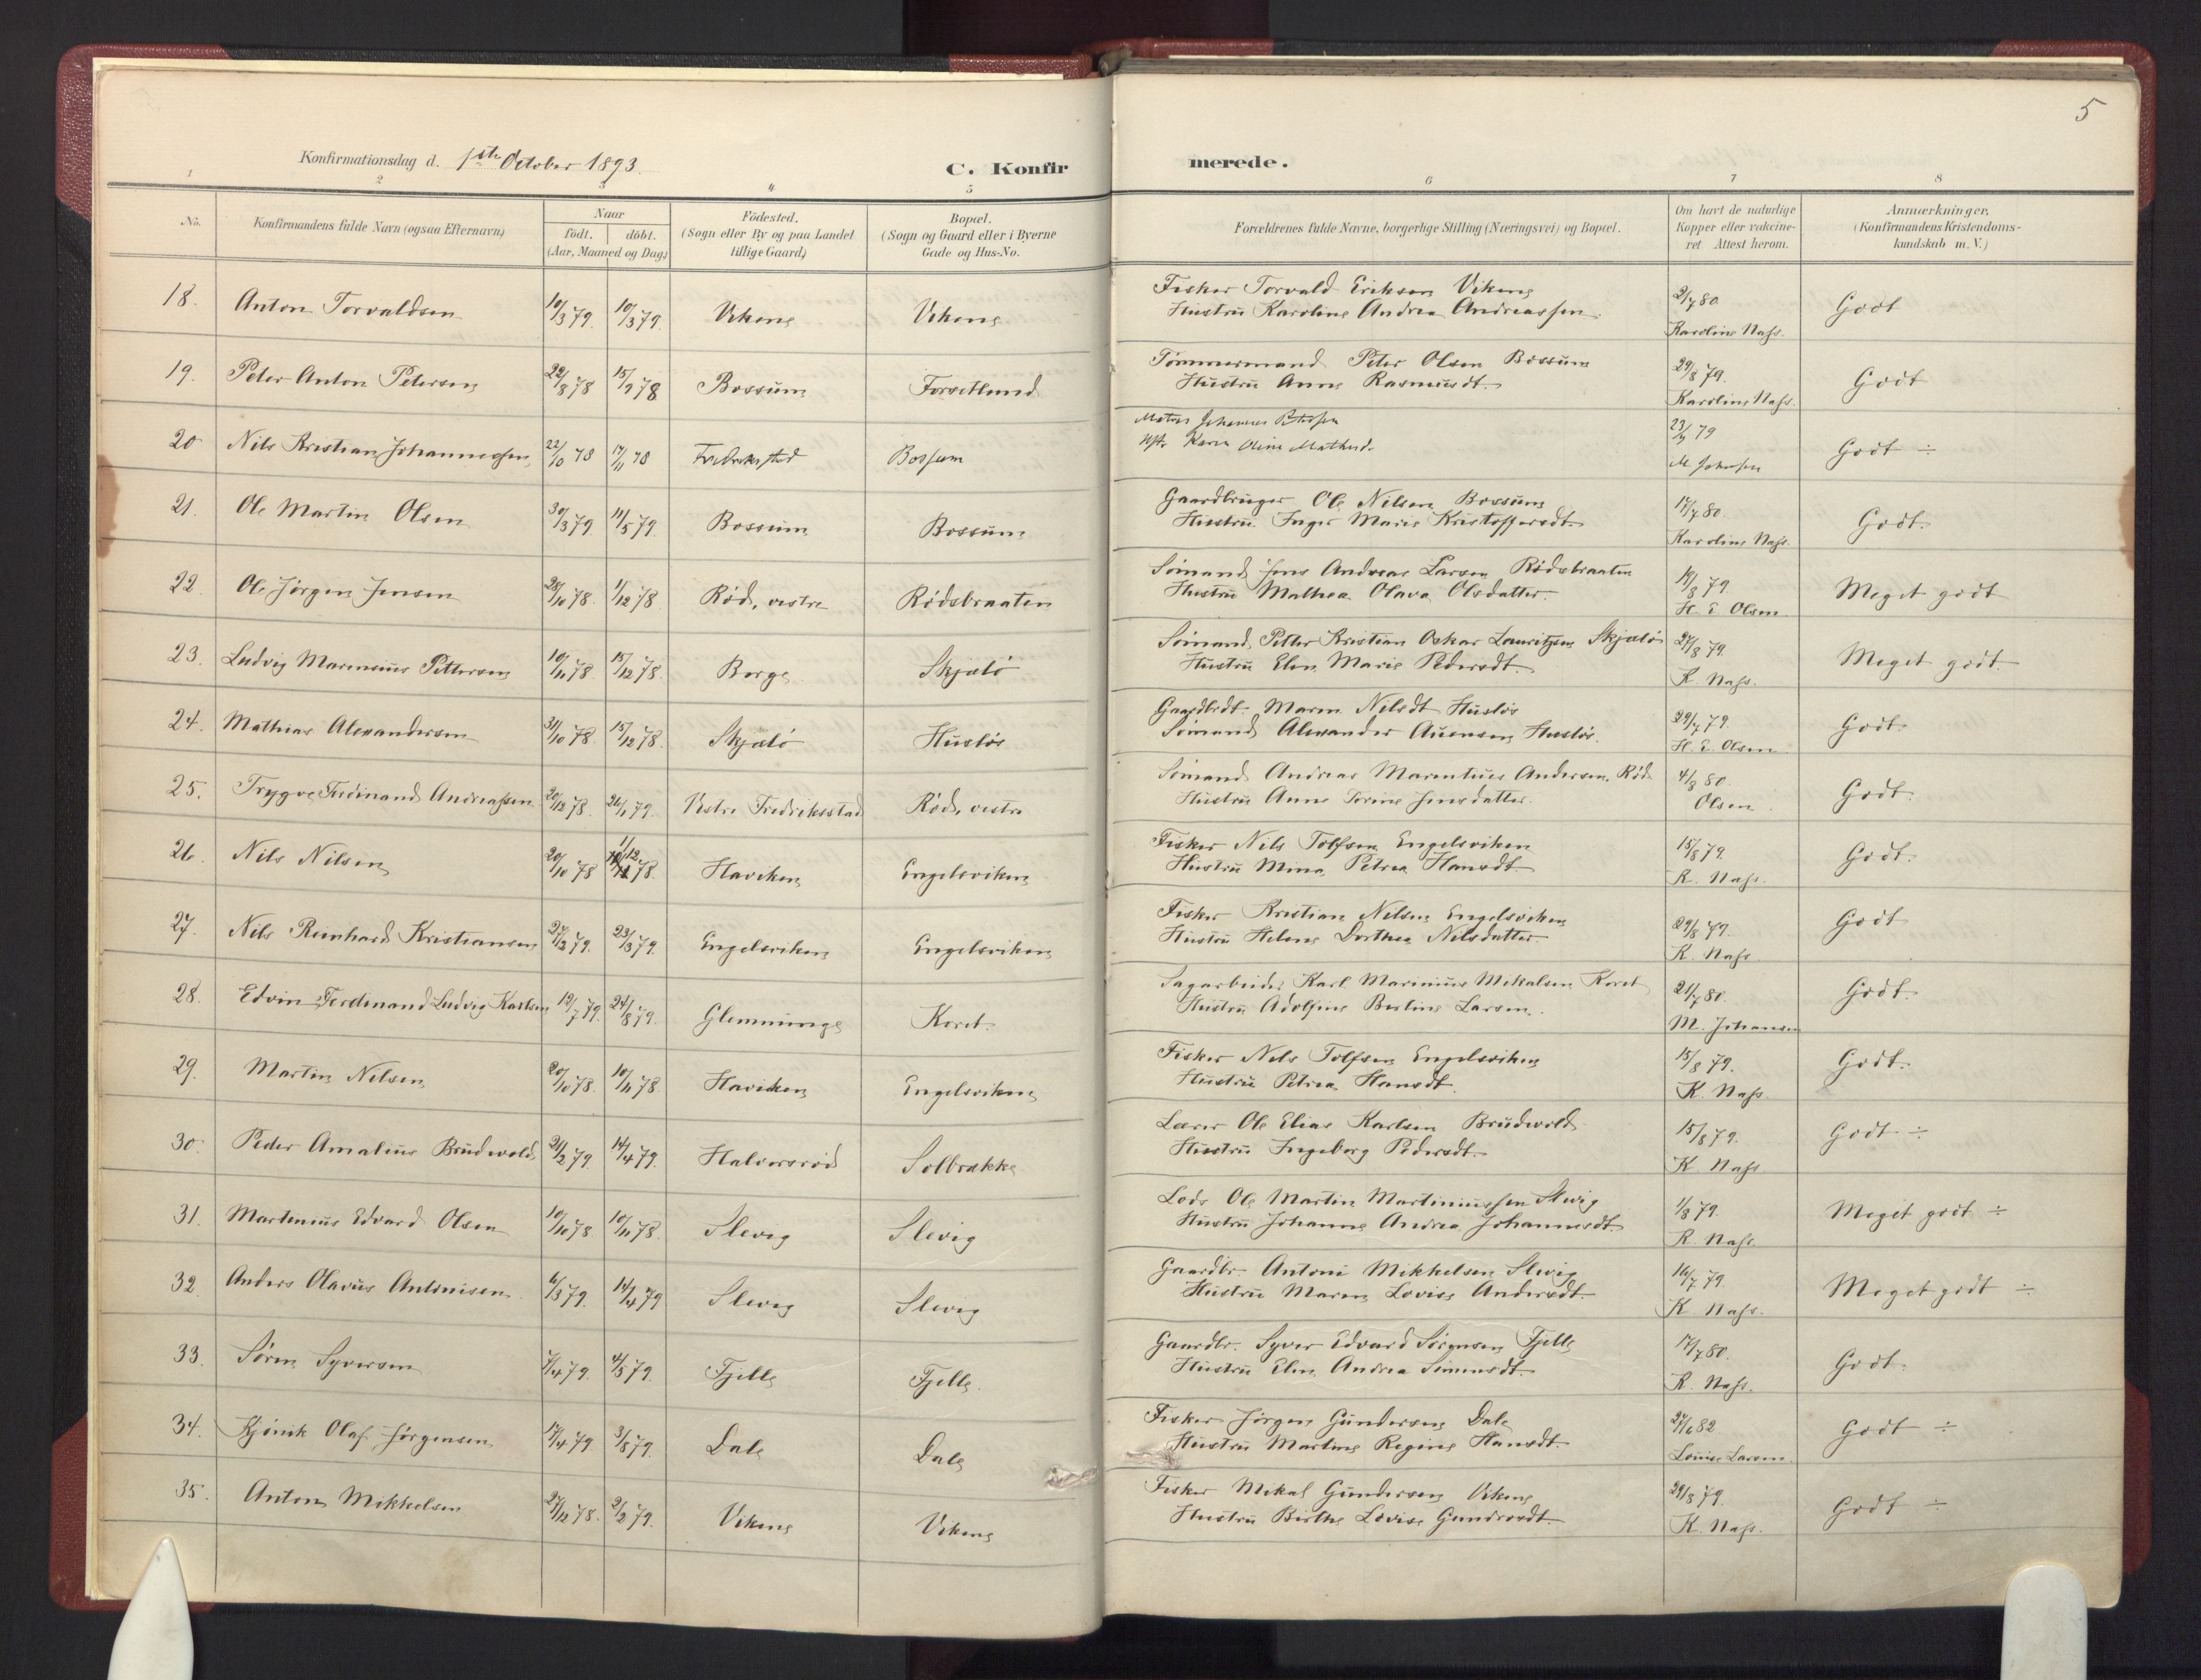 5
Konfirmationsdag d. 1ste October 1893.
C. Konfirmerede.
1 2 3 4 5 6 7 8
No. Konfirmandens fulde Navn (ogsaa Efternavn) Naar födt. döbt. (Aar, Maaned og Dag) Födested. (Sogn eller By og paa Landet tillige Gaard) Bopæl. (Sogn og Gaard eller i Byerne Gade og Hus-No. Forældrenes fulde Navne, borgerlige Stilling (Næringsvei) og Bopæl. Om havt de naturlige Kopper eller vakcineret Attest herom. Anmærkninger. (Konfirmandens Kristendomskundskab m. V.)
18. Anton Torvaldsen 10/3 79. 10/3 79. Vikene Vikene Fisker Torvald Eriksen Vikene
Hustru Karoline Andrea Andreassen. 2/7 80 Karoline Næss. Godt
19. Peter Anton Petersen 22/8 78 15/9 78 Bossum Forsetlund Tømmermand Peter Olsen Bossum
Hustru Anne Rasmusdt. 29/8 79. Karoline Næss. Godt
20 Nils Kristian Johannessen 22/10 78 17/11 78 Fredrikstad Bossum Matros Johannes
Hstr Karen Oline Mathisd. 23/9 79 M Johnsen Godt ÷
21. Ole Martin Olsen 30/3 79. 11/5 79. Bossum Bossum Gaardbruger Ole Nilsen Bossum
Hustru Inger Marie Kristoffersdt. 17/7 80. Karoline Næss. Godt.
22. Ole Jørgen Jensen 28/10 78. 1/12 78 Rød, vestre Rødsbraaten Sømand Jens Andreas Larsen Rødsbraaten
Hustru Mathea Olava Olsdatter. 19/8 79. H. E. Olsen Meget godt
23. Ludvig Marenius Pettersen 10/11 78. 15/12 78. Borge Skjælø Sømand Petter Kristian Oskar Lauritzen Skjælø
Hustru Elen Marie Pedersdt. 27/8 79. K. Næss. Meget godt.
24. Mathias Alexandersen 31/10 78. 15/12 78. Skjælø Husløs Gaardbdt. Maren Nilsdt Husløs
Sømand Alexander Auensen Husløs. 29/7 79. H. E. Olsen Godt.
25. Trygve Ferdinand Andreassen 20/12 78. 26/1 79. Vestre Fredriksstad Rød, vestre Sømand Andreas Marentius Andersen, Rød.
Hustru Anne Torine Jensdatter. 4/8 80. Olsen Godt.
26. Nils Nilsen 20/10 78 1/12 78 Haviken Engelsviken Fisker Nils Tolfsen Engelsviken
Hustru Mina Petrea Hansdt. 15/8 79. K. Næss. Godt.
27. Nils Reinhard Kristiansen 27/2 79. 23/3 79. Engelsviken Engelsviken Fisker Kristian Nilsen Engelsviken
Hustru Helene Dorthea Nilsdatter. 29/8 79. K. Næss Godt
28. Edvin Ferdinand Ludvig Karlsen 12/7 79. 24/8 79. Glemminge Koret. Sagarbeider Karl Marinius Mikalsen Koret
Hustru Adolfine Bertine Larsen. 21/7 80. M. Johansen Godt.
29. Martin Nilsen 20/10 78. 10/11 78. Haviken Engelsviken Fisker Nils Tolfsen Engelsviken
Hustru Petrea Hansdt. 15/8 79. K. Næss. Godt.
30. Peder Amalius Brudevold 21/2 79. 14/4 79. Halvorsrød Solbrække Lærer Ole Elias Karlsen Brudevold.
Hustru Ingeborg Pedersdt. 15/8 79. K. Næss. Godt ÷
31. Martinius Edvard Olsen 10/10 78. 10/11 78. Slevig Slevig Lods Ole Martin Martiniussen Slevig
Hustru Johanne Andrea Johannesdt. 1/8 79. K. Næss. Meget godt ÷
32. Anders Olavus Antonisen 6/3 79. 14/4 79 Slevig Slevig Gaardbr. Antoni Mikkelsen Slevig
Hustru Maren Lovise Andersdt. 16/7 79. K Næss. Meget godt ÷
33. Søren Syversen 7/4 79. 4/5 79. Fjelle Fjelle. Gaardbr. Syver Edvard Sørensen Fjelle
Hustru Elen Andrea Simensdt. 17/7 80. K. Næss. Godt.
34. Kjønik Olaf Jørgensen 17/4 79. 3/8 79. Dale Dale Fisker Jørgen Gundersen Dale
Hustru Martine Regine Hansdt. 27/6 82 Louise Larsen. Godt ÷
35. Anton Mikkelsen 27/12 78. 2/2 79. Vikene Vikene Fisker Mikal Gundersen Vikene
Hustru Birthe Lovise Gundersdt. 29/8 79. K. Næss. Godt ÷